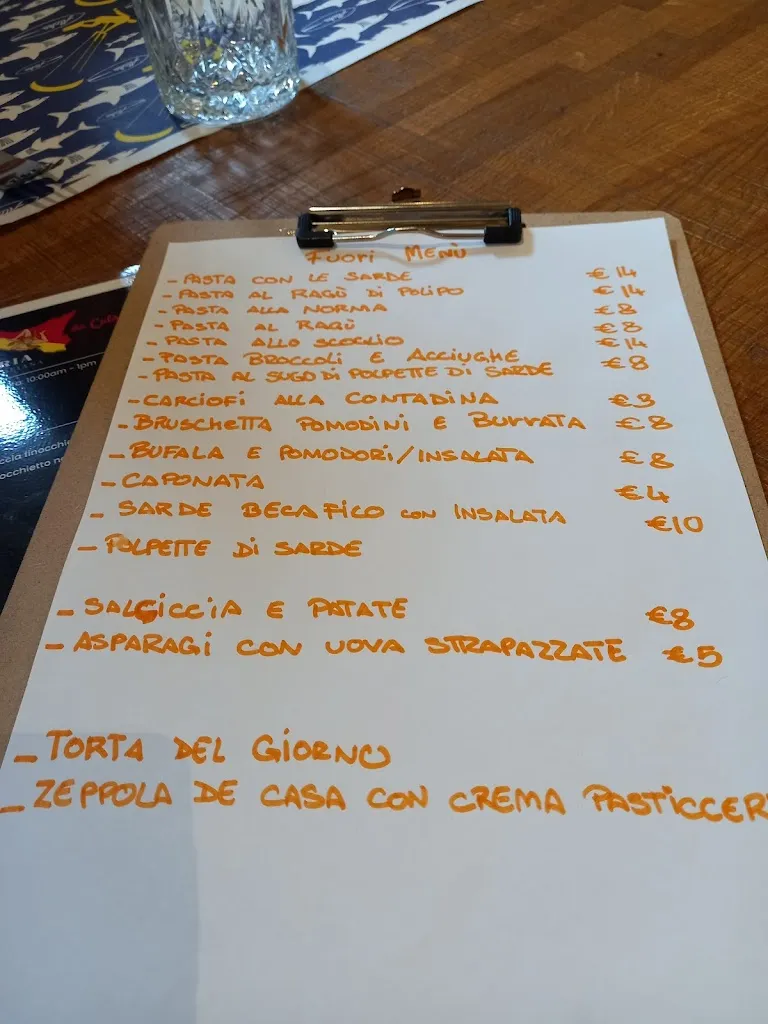 Fuori Menù
- Pasta con le sarde €14
- Pasta al ragù di polipo €14
- Pasta alla norma €8
- Pasta al ragù €8
- Pasta allo scoglio €14
- Pasta broccoli e acciughe €8
- Pasta al sugo di polpette di sarde
- Carciofi alla contadina €3
- Bruschetta pomodini e burrata €8
- Bufala e pomodori/insalata €8
- Caponata €4
- Sarde becafico con insalata €10
- Polpette di sarde
- Salsiccia e patate €8
- Asparagi con uova strapazzate €5
- Torta del giorno
- Zeppola de casa con crema pasticcer
RIA
10:00am - 1pm